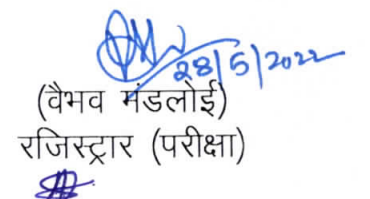 28/5/2022
(वैभव मंडलोई)
रजिस्ट्रार (परीक्षा)